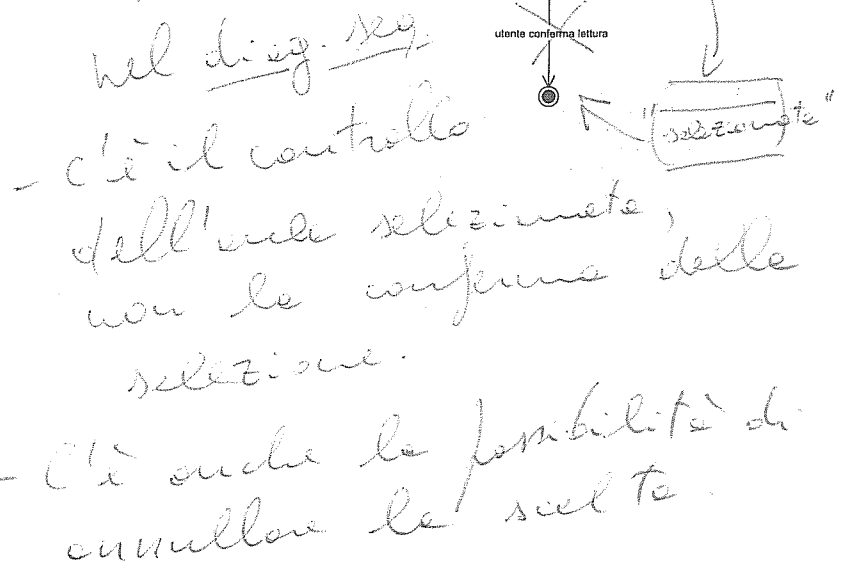 nel diag. seq.
utente conferma lettura
"selezionata"
- c'è il controllo
dell'aula selezionata,
non la conferma della
selezione.
- C'è anche la possibilità di
annullare la scelta.